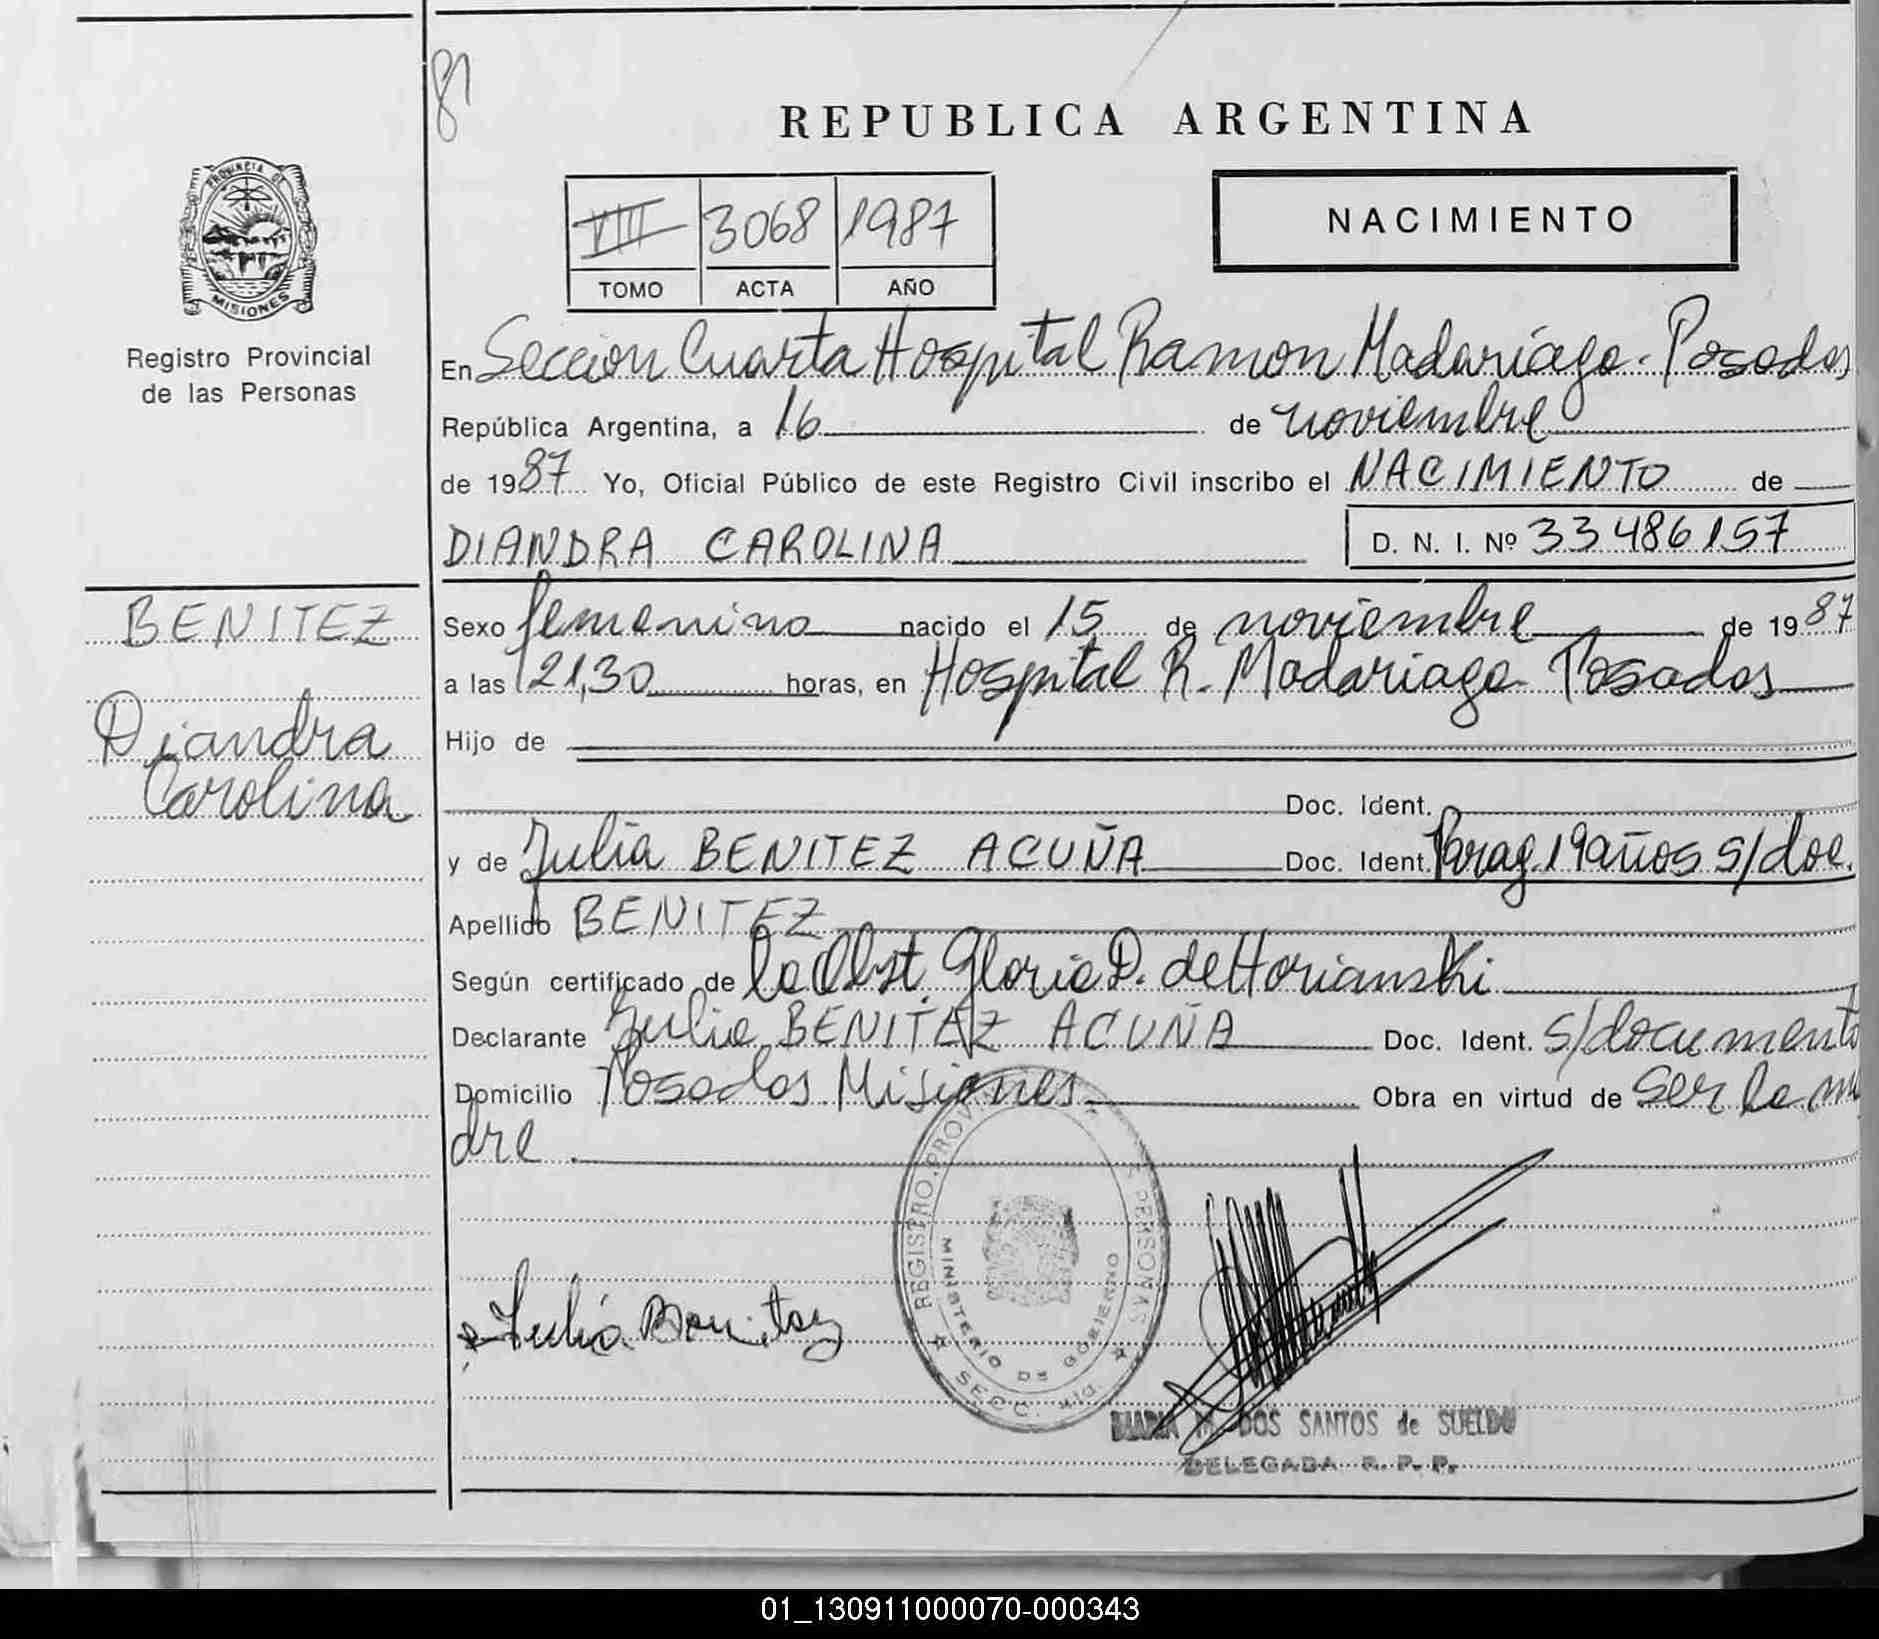 81
REPUBLICA ARGENTINA
PROVINCIA DE
MISIONES
Registro Provincial
de las Personas
VIII 3068 1987
TOMO ACTA AÑO
NACIMIENTO
En Seccion Cuarta Hospital Ramon Madariaga. Posadas
República Argentina, a 16 de noviembre
de 1987 Yo, Oficial Público de este Registro Civil inscribo el NACIMIENTO de
DIANDRA CAROLINA D. N. I. Nº 33486157
BENITEZ
Diandra
Carolina
Sexo femenino nacido el 15 de noviembre de 1987
a las 21,30 horas, en Hospital R. Madariaga Posadas
Hijo de
Doc. Ident.
y de Julia BENITEZ ACUÑA Doc. Ident. Parag. 19 años s/doc.
Apellido BENITEZ
Según certificado de la Obst. Gloria D. de Horianski
Declarante Julia BENITEZ ACUÑA Doc. Ident. s/documento
Domicilio Posadas Misiones Obra en virtud de ser la ma
dre.
REGISTRO PROVIN PERSONAS
MINISTERIO DE GOBIERNO
SECC. 4ta.
Julia Benitez
M. DOS SANTOS de SUELDO
DELEGADA R. P. P.
01_130911000070-000343